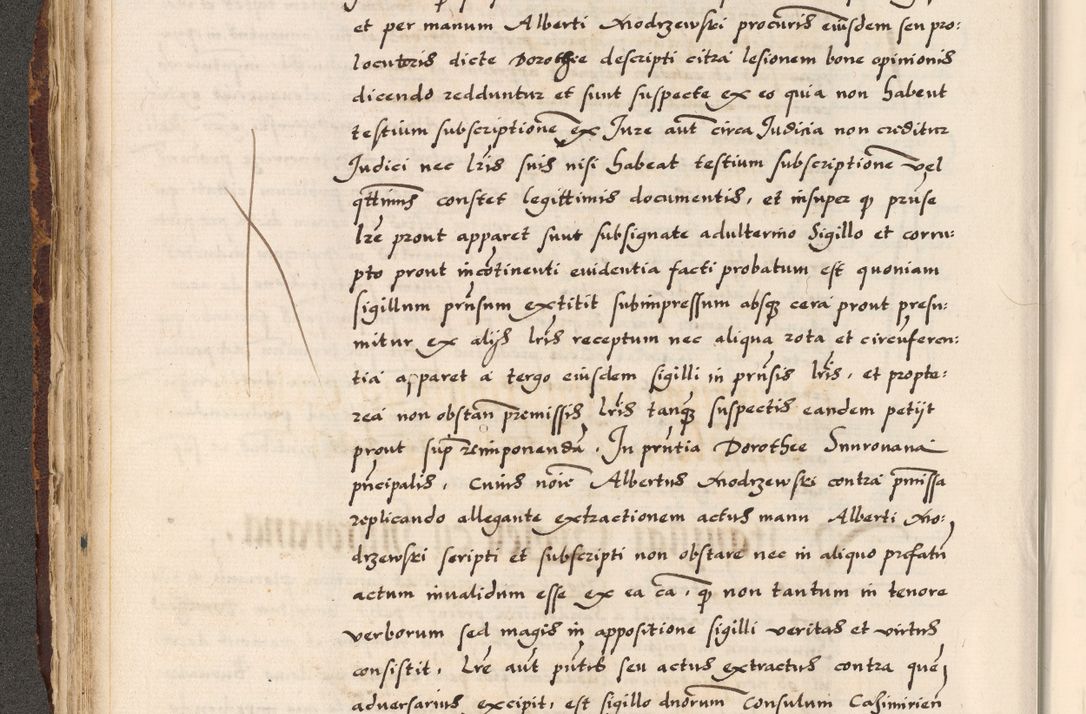 et per manum Alberti Modrzewski procuris eiusdem seu pro:
locutoris dicte Dorothee descripti citra lesionem bone opinionis
dicendo redduntur et sunt suspecte ex eo quia non habent
testium subscriptione ex Jure aut circa Judicia non creditur
Judici nec lris suis nisi habeat testium subscriptione vel
constet legittimis documentis, et insuper q pnse
lre prout apparet sunt subsignate adulterino Sigillo et corru:
pto prout incotinenti euidentia facti probatum est quoniam
sigillum pnsum extitit subimpressum absq cera prout presu:
mitur ex alijs lris receptum nec aliqua rota et circuferen:
tia apparet a tergo eiusdem sigilli in prnsis lris, et propte:
rea non obstan premissis lris tanq suspectis eandem petijt
prout sup reimponenda. In prntia Dorothee
pncipalis, Cuius noie Albertus Modrzewski contra pmissa
replicando allegante extractionem actus manu Alberti Mo:
drzewski scripti et subscripti non obstare nec in aliquo prefatu
actum inualidum esse ex ea ca, q non tantum in tenore
verborum sed magis in appositione sigilli veritas et virtus
consistit, lre aut pntes seu actus extractus contra que
adversarius excipit, est sigillo dnorum Consulum Casimirien